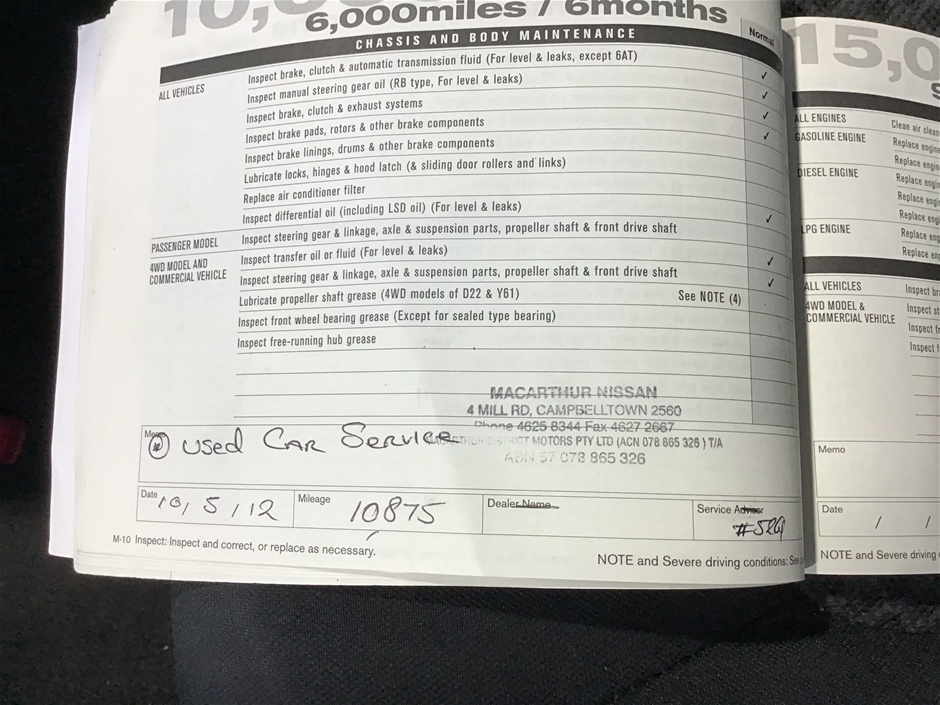 10,0
6,000miles / 6months
CHASSIS AND BODY MAINTENANCE
Normal
ALL VEHICLES
Inspect brake, clutch & automatic transmission fluid (For level & leaks, except 6AT) ✓
Inspect manual steering gear oil (RB type, For level & leaks) ✓
Inspect brake, clutch & exhaust systems ✓
Inspect brake pads, rotors & other brake components ✓
Inspect brake linings, drums & other brake components
Lubricate locks, hinges & hood latch (& sliding door rollers and links)
Replace air conditioner filter
Inspect differential oil (including LSD oil) (For level & leaks)
PASSENGER MODEL
Inspect steering gear & linkage, axle & suspension parts, propeller shaft & front drive shaft ✓
4WD MODEL AND
COMMERCIAL VEHICLE
Inspect transfer oil or fluid (For level & leaks) ✓
Inspect steering gear & linkage, axle & suspension parts, propeller shaft & front drive shaft ✓
Lubricate propeller shaft grease (4WD models of D22 & Y61) See NOTE (4)
Inspect front wheel bearing grease (Except for sealed type bearing)
Inspect free-running hub grease
MACARTHUR NISSAN
4 MILL RD, CAMPBELLTOWN 2560
Phone 4625 8344 Fax 4627 2667
MOTORS PTY LTD (ACN 078 865 326) T/A
ABN 57 078 865 326
Used Car Service
Date 10/5/12
Mileage 10875
Dealer Name
Service Advisor
M-10 Inspect: Inspect and correct, or replace as necessary.
NOTE and Severe driving conditions: See
15,0
ALL ENGINES
Clean air clean
GASOLINE ENGINE
Replace engine
Replace engin
DIESEL ENGINE
Replace engin
Replace engi
Replace engi
LPG ENGINE
Replace eng
Replace en
ALL VEHICLES
Inspect br
4WD MODEL &
COMMERCIAL VEHICLE
Inspect st
Inspect fr
Inspect f
Memo
Date / /
NOTE and Severe driving